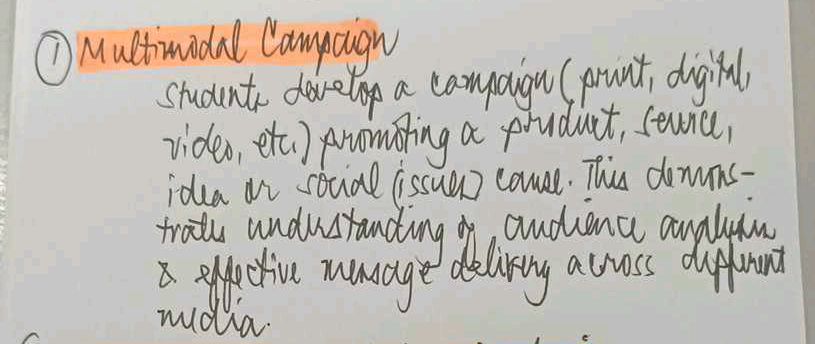 ① Multimodal Campaign
Students develop a campaign (print, digital,
video, etc.) promoting a product, service,
idea or social (issues) cause. This demons-
trates understanding of audience analysis
& effective message delivery across different
media.